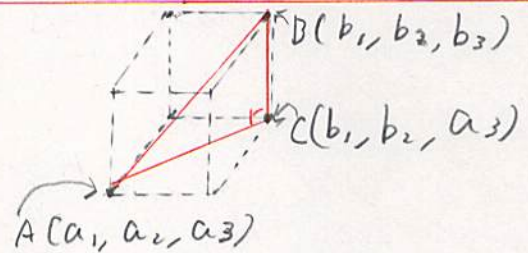 B(b₁, b₂, b₃)
C(b₁, b₂, a₃)
A(a₁, a₂, a₃)